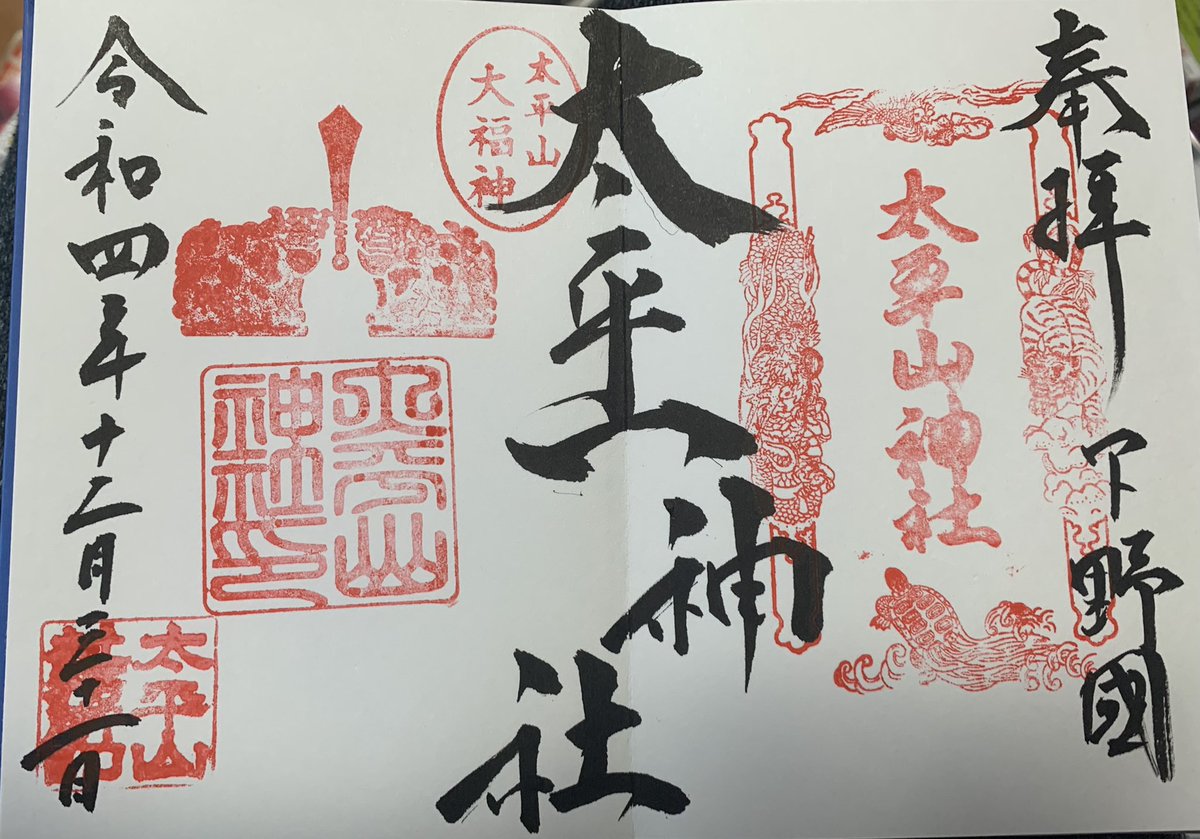 奉拝
下野國
太平山神社
太平山神社
太平山
大福神
太平山
神社印
令和四年十二月三十一日
太平山